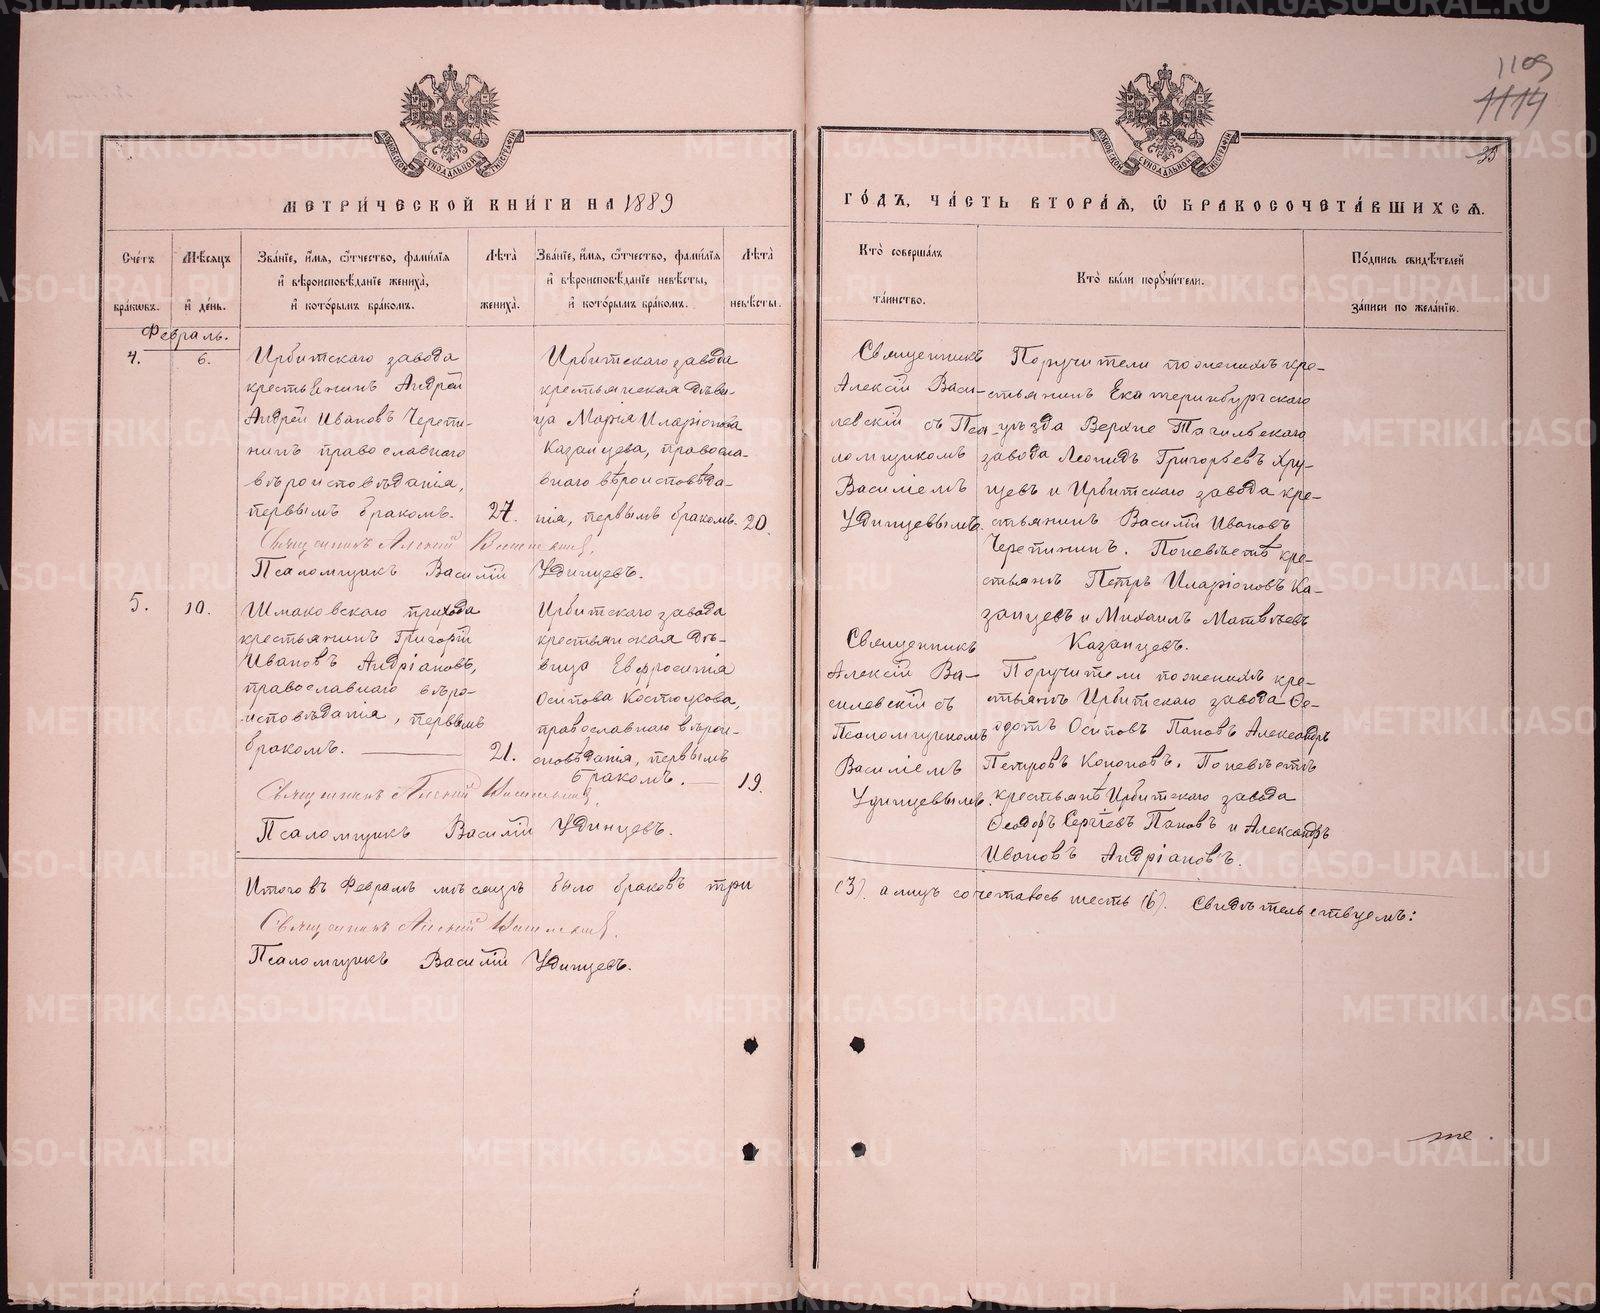 1109
1114
33
МОСКОВСКОЙ СѴНОДАЛЬНОЙ ТИПОГРАФІИ
МОСКОВСКОЙ СѴНОДАЛЬНОЙ ТИПОГРАФІИ
МЕТРИ́ЧЕСКОЙ КНИ́ГИ НА 1889
ГО́ДЪ, ЧА́СТЬ ВТОРА́Я, Ѡ БРАКОСОЧЕТА́ВШИХСЯ.
Сче́тъ
бра́кѡвъ.
Мѣ́сяцъ
и҆ де́нь.
Зва́нїе, и҆́мя, ѻ҆́тчество, фами́лїя
и҆ вѣроисповѣ́данїе жениха̀,
и҆ кото́рымъ бра́комъ.
Лѣ́та
жениха̀.
Зва́нїе, и҆́мя, ѻ҆́тчество, фами́лїя
и҆ вѣроисповѣ́данїе невѣ́сты,
и҆ кото́рымъ бра́комъ.
Лѣ́та
невѣ́сты.
Кто̀ соверша́лъ
та́инство.
Кто̀ бы́ли порꙋчи́тели.
По́дпись свидѣ́телей
за́писи по жела́нїю.
Февраль.
4.
6.
Ирбитскаго завода
крестьянинъ Андрей
Андрей Ивановъ Черепа-
нинъ православнаго
вѣроисповѣданія,
первымъ бракомъ.
27.
Ирбитскаго завода
крестьянская дѣви-
ца Марія Иларіонова
Казанцева, правосла-
внаго вѣроисповѣда-
нія, первымъ бракомъ.
20.
Священникъ Алексій Василевскій.
Псаломщикъ Василій Удинцевъ.
Священникъ
Алексій Васи-
левскій съ Пса-
ломщикомъ
Василіемъ
Удинцевымъ.
Поручители по женихѣ кре-
стьянинъ Екатеринбургскаго
уѣзда Верхне Тагильскаго
завода Леонидъ Григорьевъ Хру-
щевъ и Ирбитскаго завода кре-
стьянинъ Василій Ивановъ
Черепанинъ. По невѣстѣ кре-
стьянъ Петръ Иларіоновъ Ка-
занцевъ и Михаилъ Матвѣевъ
Казанцевъ.
5.
10.
Шмаковскаго прихода
крестьянинъ Григорій
Ивановъ Андріановъ,
православнаго вѣро-
исповѣданія, первымъ
бракомъ.
21.
Ирбитскаго завода
крестьянская дѣ-
вица Евфросинія
Осипова Костюкова,
православнаго вѣрои-
сповѣданія, первымъ
бракомъ.
19.
Священникъ Алексій Василевскій.
Псаломщикъ Василій Удинцевъ.
Священникъ
Алексій Ва-
силевскій съ
Псаломщикомъ
Василіемъ
Удинцевымъ.
Поручители по женихѣ кре-
стьянъ Ирбитскаго завода Ѳе-
одотъ Осиповъ Пановъ Александръ
Петровъ Кононовъ. По невѣстѣ
крестьянѣ Ирбитскаго завода
Ѳеодоръ Сергіевъ Пановъ и Александръ
Ивановъ Андріановъ.
Итого въ Февралѣ мѣсяцѣ было браковъ три
(3). а лицъ сочеталось шесть (6). Свидѣтельствуемъ:
Священникъ Алексій Василевскій.
Псаломщикъ Василій Удинцевъ.